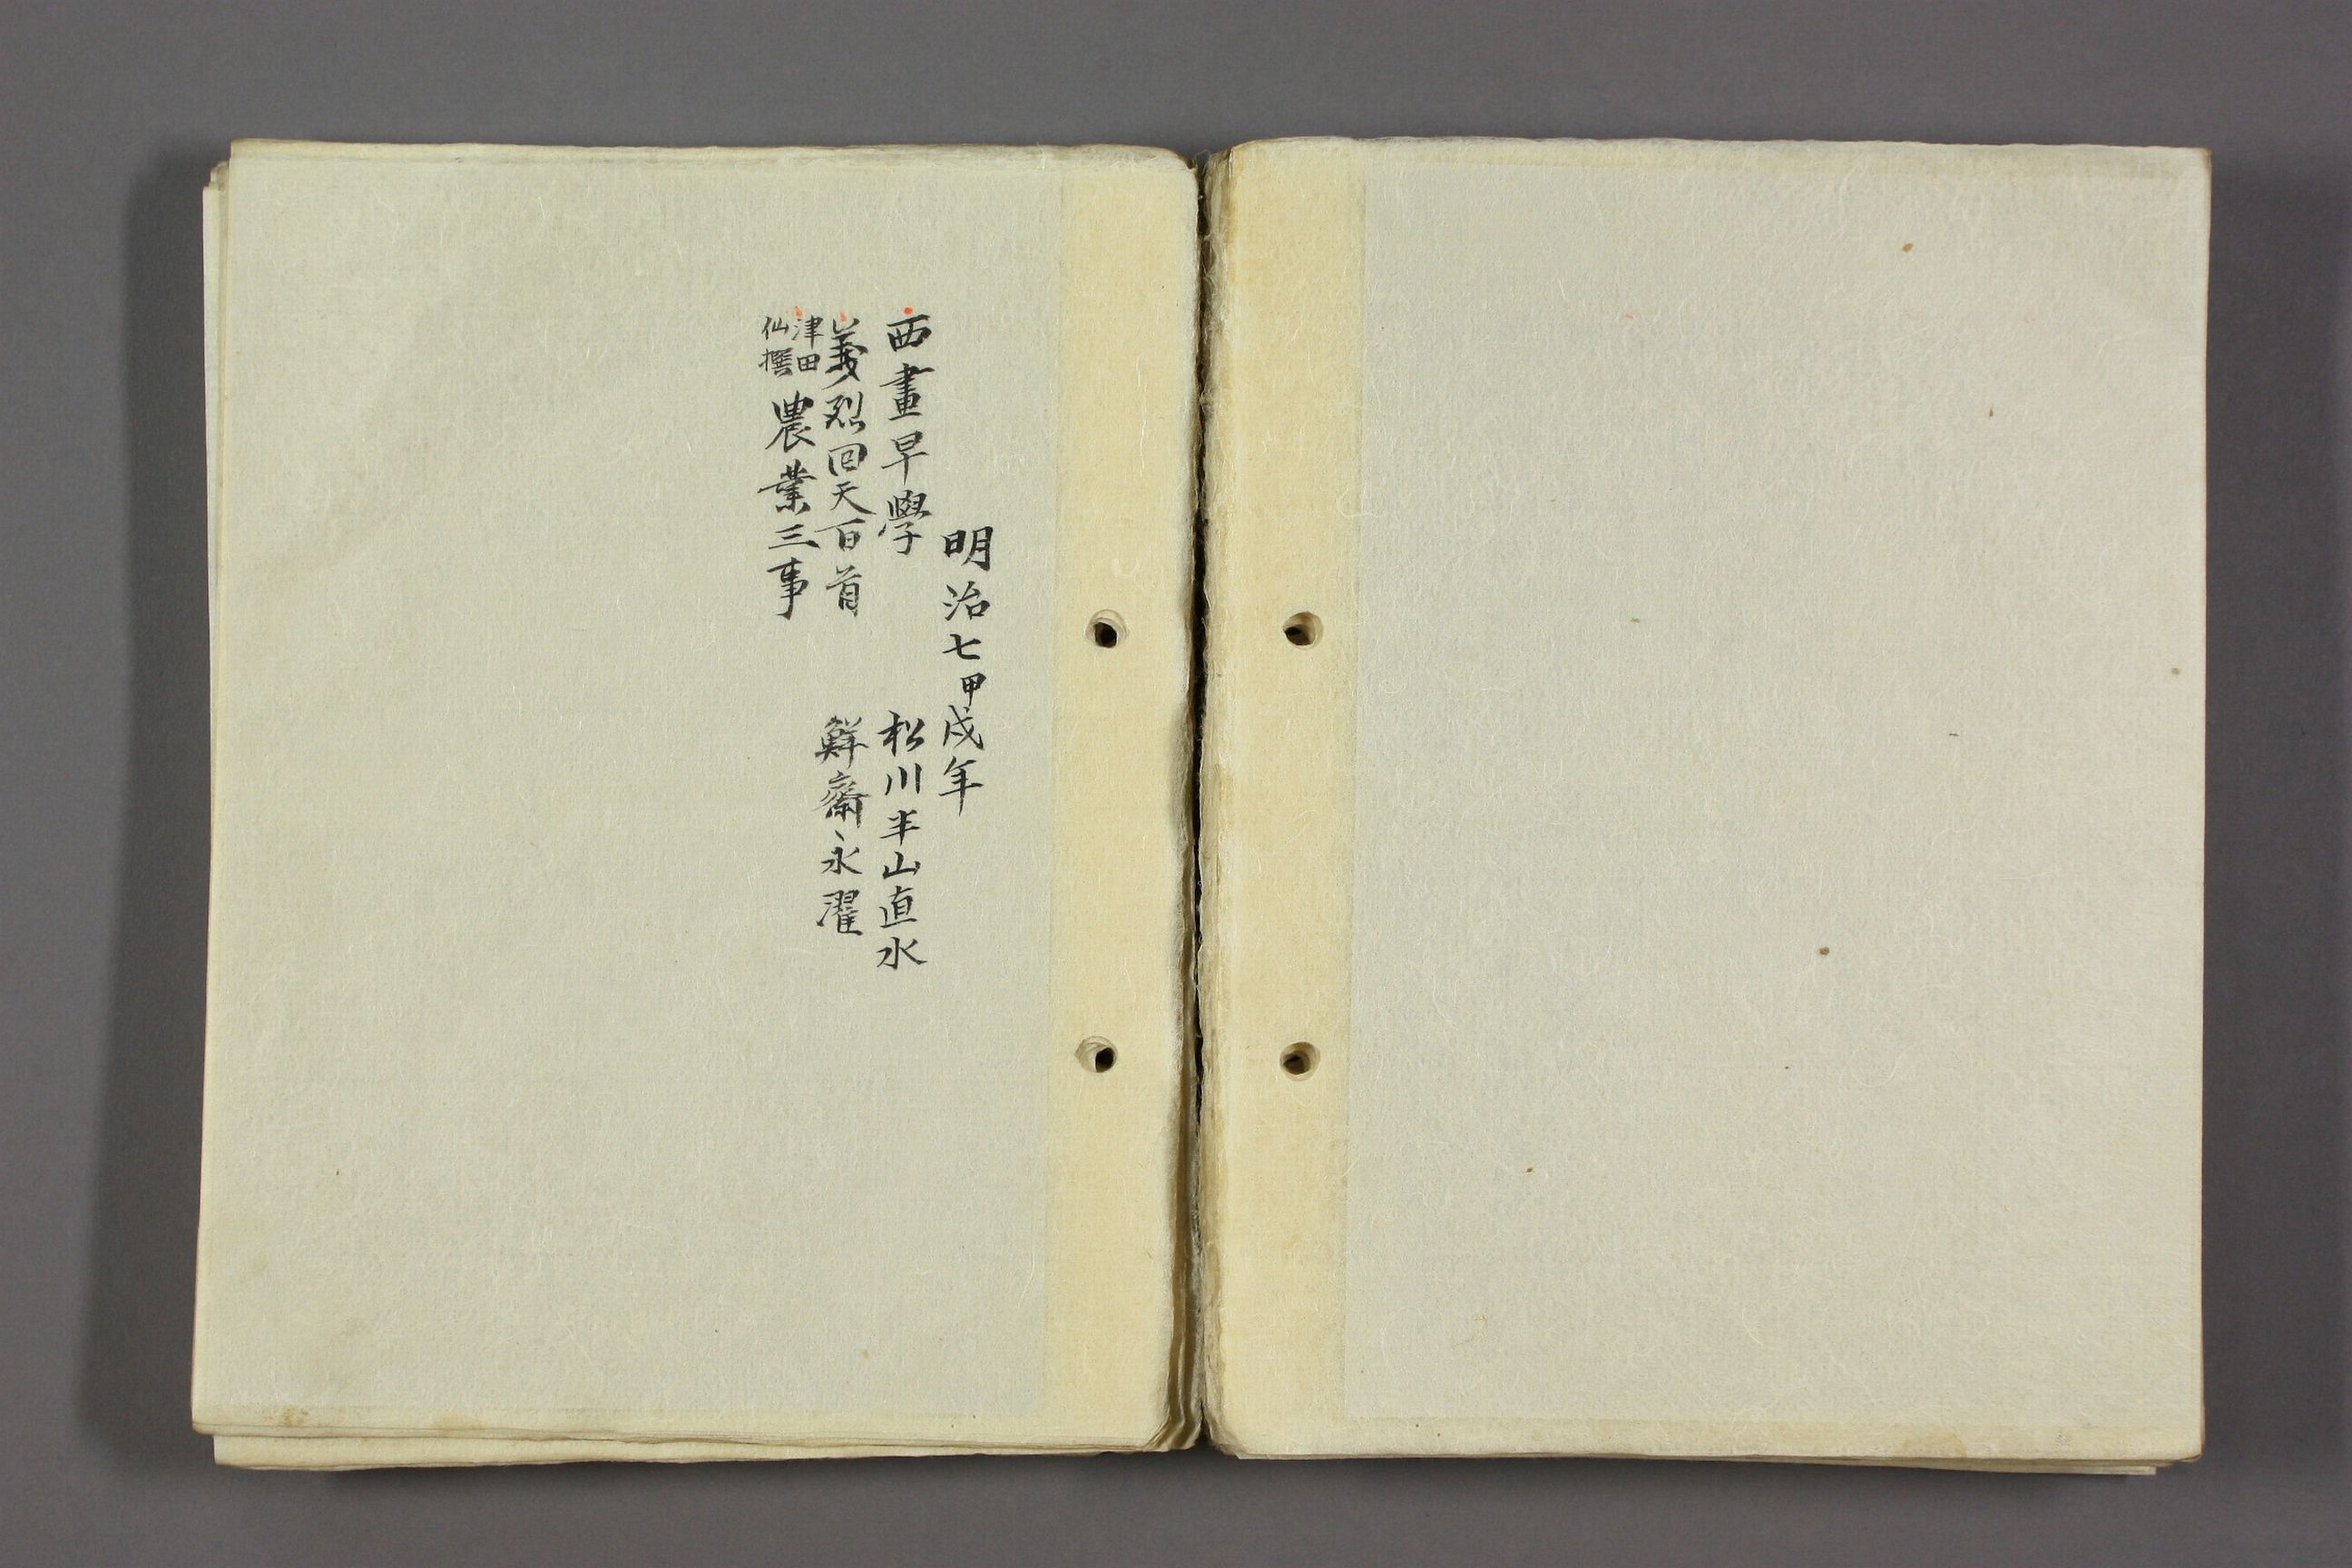 明治七甲戌年
西畫早學　松川半山直水
義烈回天百首　鮮齋永濯
津田仙撰　農業三事